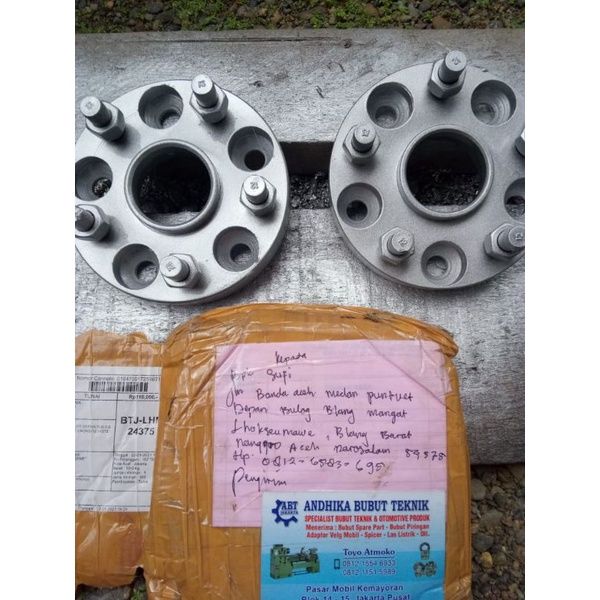 TUNAI
BTJ-LH
24375
Kepada
Bpk Sufi
Jln Banda aceh medan puntuet
Depan Bulog Blang mangat
Lhokseumawe, Blang Barat
Aceh Darosalam
Hp. 0812-6583-695
Pengirim
ABT
JAKARTA
ANDHIKA BUBUT TEKNIK
SPECIALIST BUBUT TEKNIK & OTOMOTIVE PRODUK
Menerima : Bubut Spare Part - Bubut Piringan
Adaptor Velg Mobil - Spicer - Las Listrik - Oli.
Toyo Atmoko
0812 1554 6933
0812 1151 5989
Pasar Mobil Kemayoran
Blok 14 - 15, Jakarta Pusat